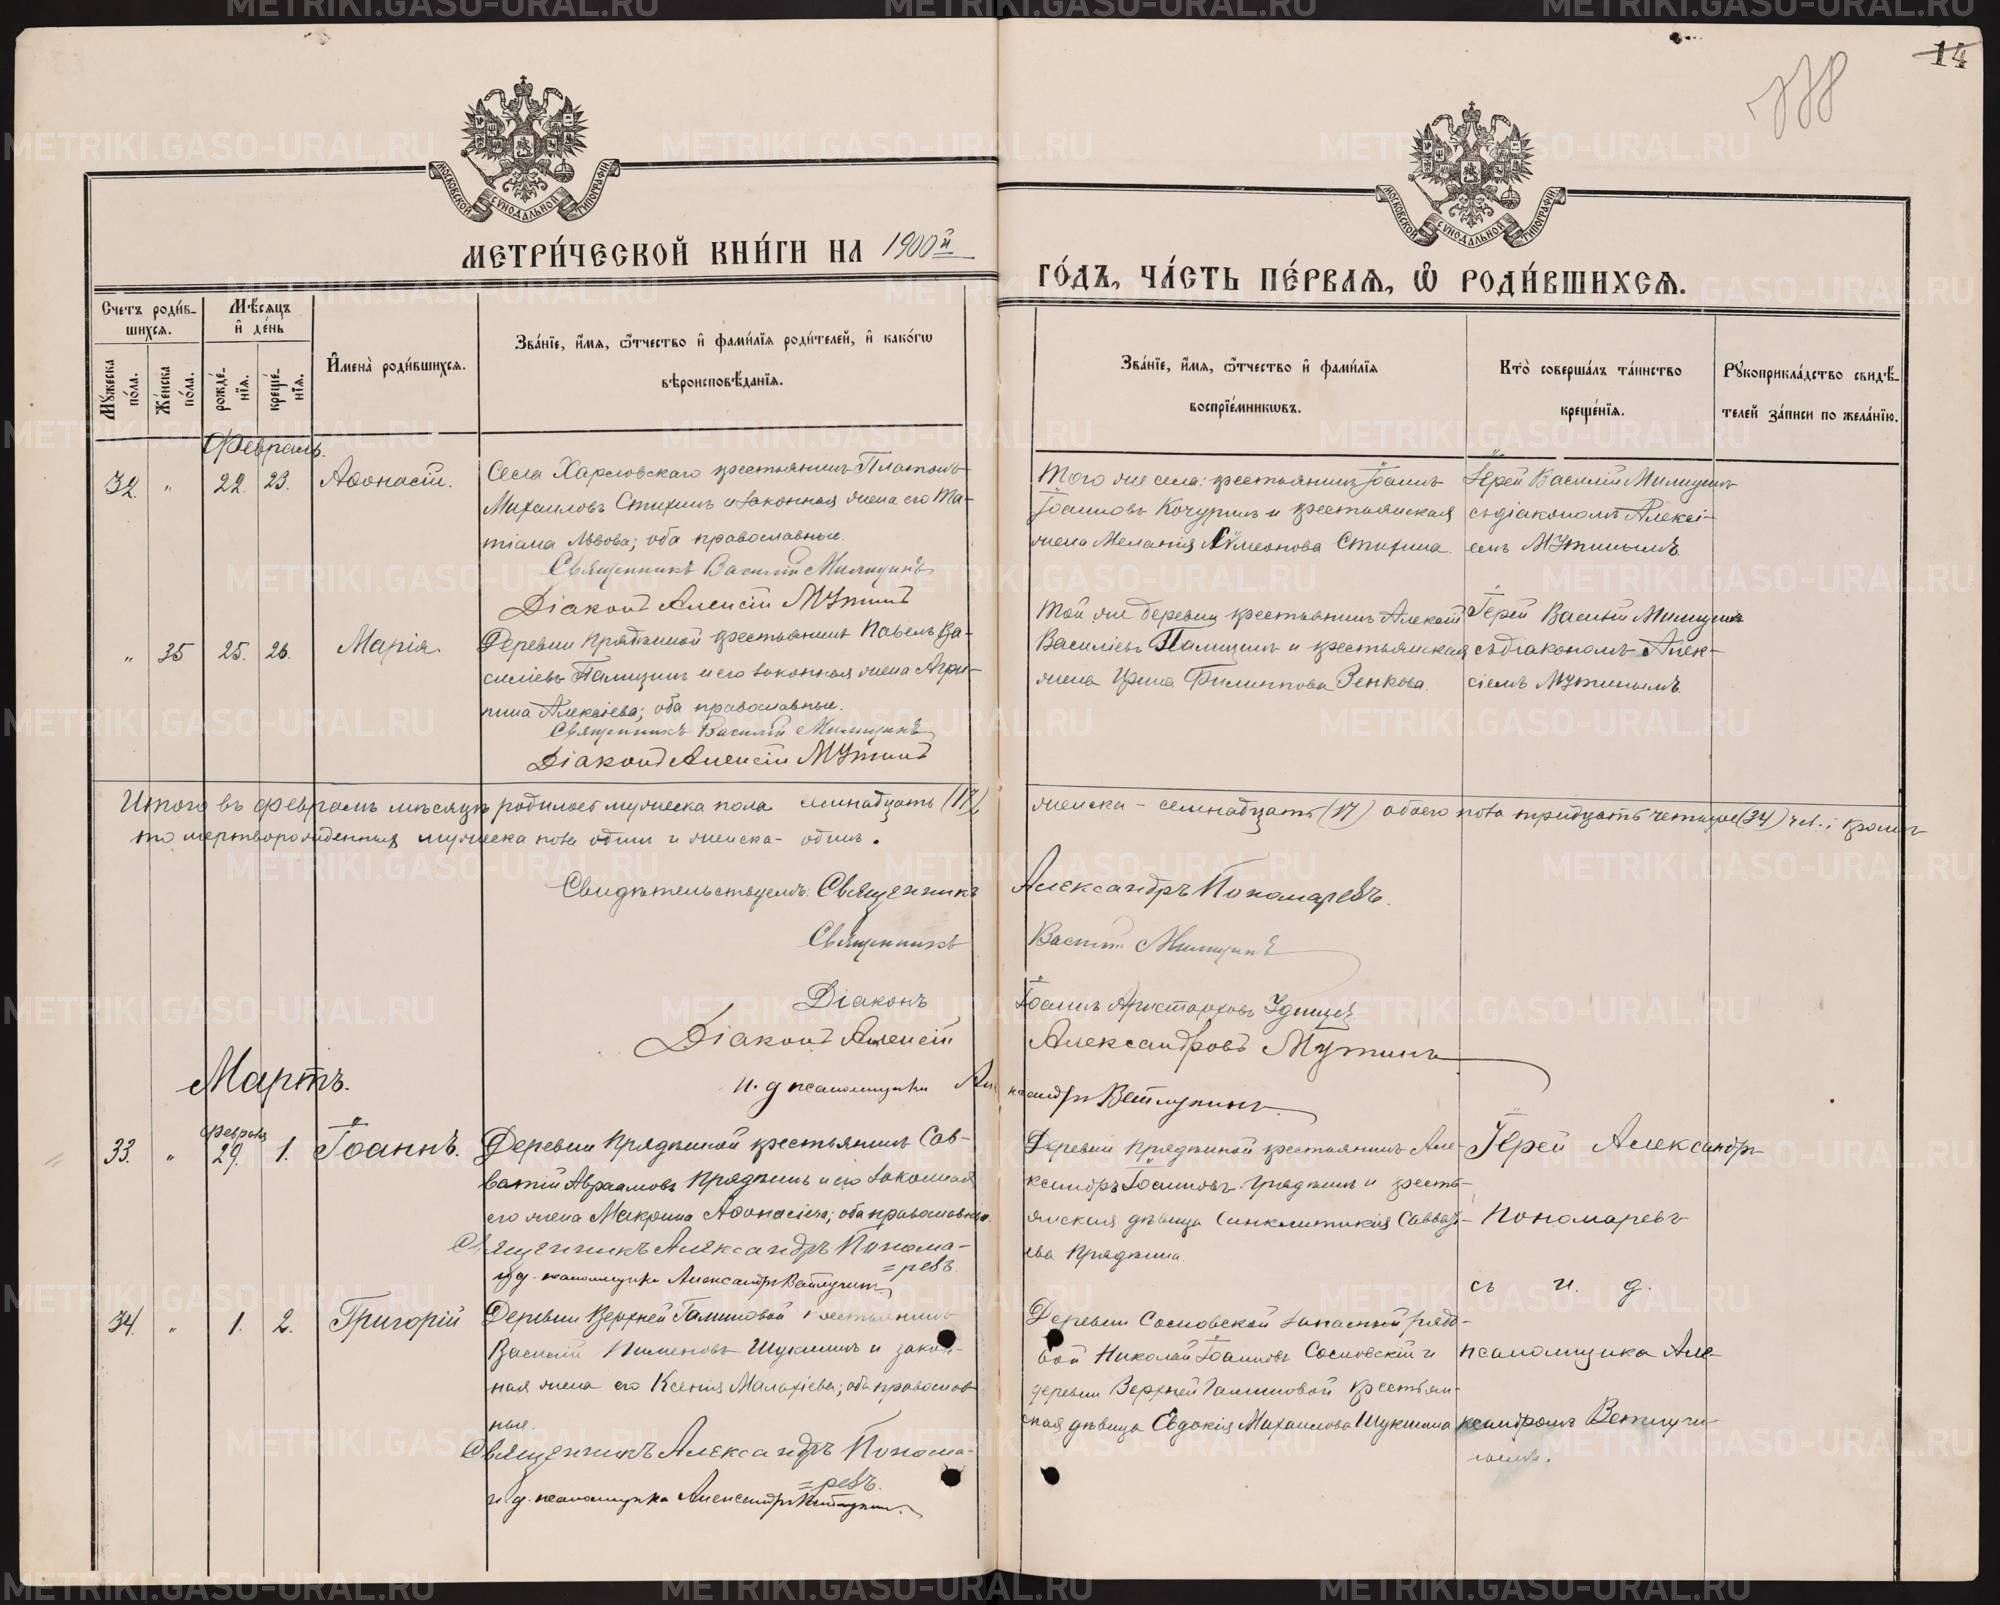 14
МОСКОВСКОЙ СУНОДАЛЬНОЙ ТИПОГРАФІИ
МОСКОВСКОЙ СУНОДАЛЬНОЙ ТИПОГРАФІИ
МЕТРИ́ЧЕСКОЙ КНИ́ГИ НА 1900й
ГО́ДЪ, ЧА́СТЬ ПЕ́РВАѦ, Ѽ РОДИ́ВШИХСѦ.
Счетъ роди́в-
шихсѧ.
Мꙋжеска по́ла.
Же́нска по́ла.
Мѣ́сѧцъ
и҆ де́нь
рожде́-
нїѧ.
креще́-
нїѧ.
И҆мена̀ роди́вшихсѧ.
Зва́нїе, и҆́мѧ, ѻ҆́тчество и҆ фами́лїѧ роди́телей, и҆ како́гѡ
вѣроисповѣ́данїѧ.
Зва́нїе, и҆́мѧ, ѻ҆́тчество и҆ фами́лїѧ
воспрїе́мникѡвъ.
Кто̀ соверша́лъ та́инство
креще́нїѧ.
Рꙋкоприкла́дство свидѣ́-
телей за́писи по жела́нїю.
Февраль.
32. „ 22. 23. Аѳонасій.
Села Харловскаго крестьянинъ Платонъ
Михаиловъ Стихинъ и законная жена его Та-
тіана Львова; оба православные.
Священникъ Василій Милицинъ
Діаконъ Алексій Мутинъ
Того же села: крестьянинъ Іоаннъ
Іоанновъ Кочуринъ и крестьянская
жена Меланія Сумеонова Стихина.
Іерей Василій Милицинъ
съ діакономъ Алексі-
емъ Мутинымъ.
„ 35 25. 26. Марія.
Деревни Прядкиной крестьянинъ Павелъ Ва-
силіевъ Палицинъ и его законная жена Агри-
пина Алексіева; оба православные.
Священникъ Василій Милицинъ
Діаконъ Алексій Мутинъ
Той же деревни крестьянинъ Алексій
Василіевъ Палицинъ и крестьянская
жена Ирина Филиппова Зенкова.
Іерей Василій Милицинъ
съ діакономъ Алек-
сіемъ Мутинымъ.
Итого въ февралѣ мѣсяцѣ родилось мужеска пола семнадцать (17),
женска - семнадцать (17) обоего пола тридцать четыре (34) чел.; кромѣ
то мертворожденныя мужеска пола одинъ и женска - одинъ.
Свидѣтельствуемъ: Священникъ Александръ Пономаревъ.
Священникъ Василій Милицинъ
Діаконъ Іоаннъ Аристарховъ Удинцевъ
Діаконъ Алексій Александровъ Мутинъ
и. д. псаломщика Александръ Ветлугинъ
Мартъ.
33. „ февраля 29. 1. Іоаннъ.
Деревни Прядкиной крестьянинъ Сав-
ватій Авраамовъ Прядкинъ и его законная
его жена Макрина Аѳонасіева; оба православные.
Священникъ Александръ Понома-
=ревъ.
и д. псаломщика Александръ Ветлугинъ
Деревни Прядкиной крестьянинъ Але-
ксандръ Іоанновъ Прядкинъ и кресть-
янская дѣвица Синклитикія Савваті-
ева Прядкина.
Іерей Александръ
Пономаревъ
съ и. д.
34. „ 1. 2. Григорій
Деревни Верхней Галишовой крестьянинъ
Василій Пименовъ Шукшинъ и закон-
ная жена его Ксенія Малахіева; оба православ-
ные.
Священникъ Александръ Понома-
=ревъ.
и д. псаломщика Александръ Ветлугинъ.
Деревни Сосновской запасный рядо-
вой Николай Іоанновъ Сосновскій и
деревни Верхней Галишовой крестьян-
ская дѣвица Евдокія Михаилова Шукшина
псаломщика Але-
ксандромъ Ветлуги-
нымъ.
METRIKI.GASO-URAL.RU